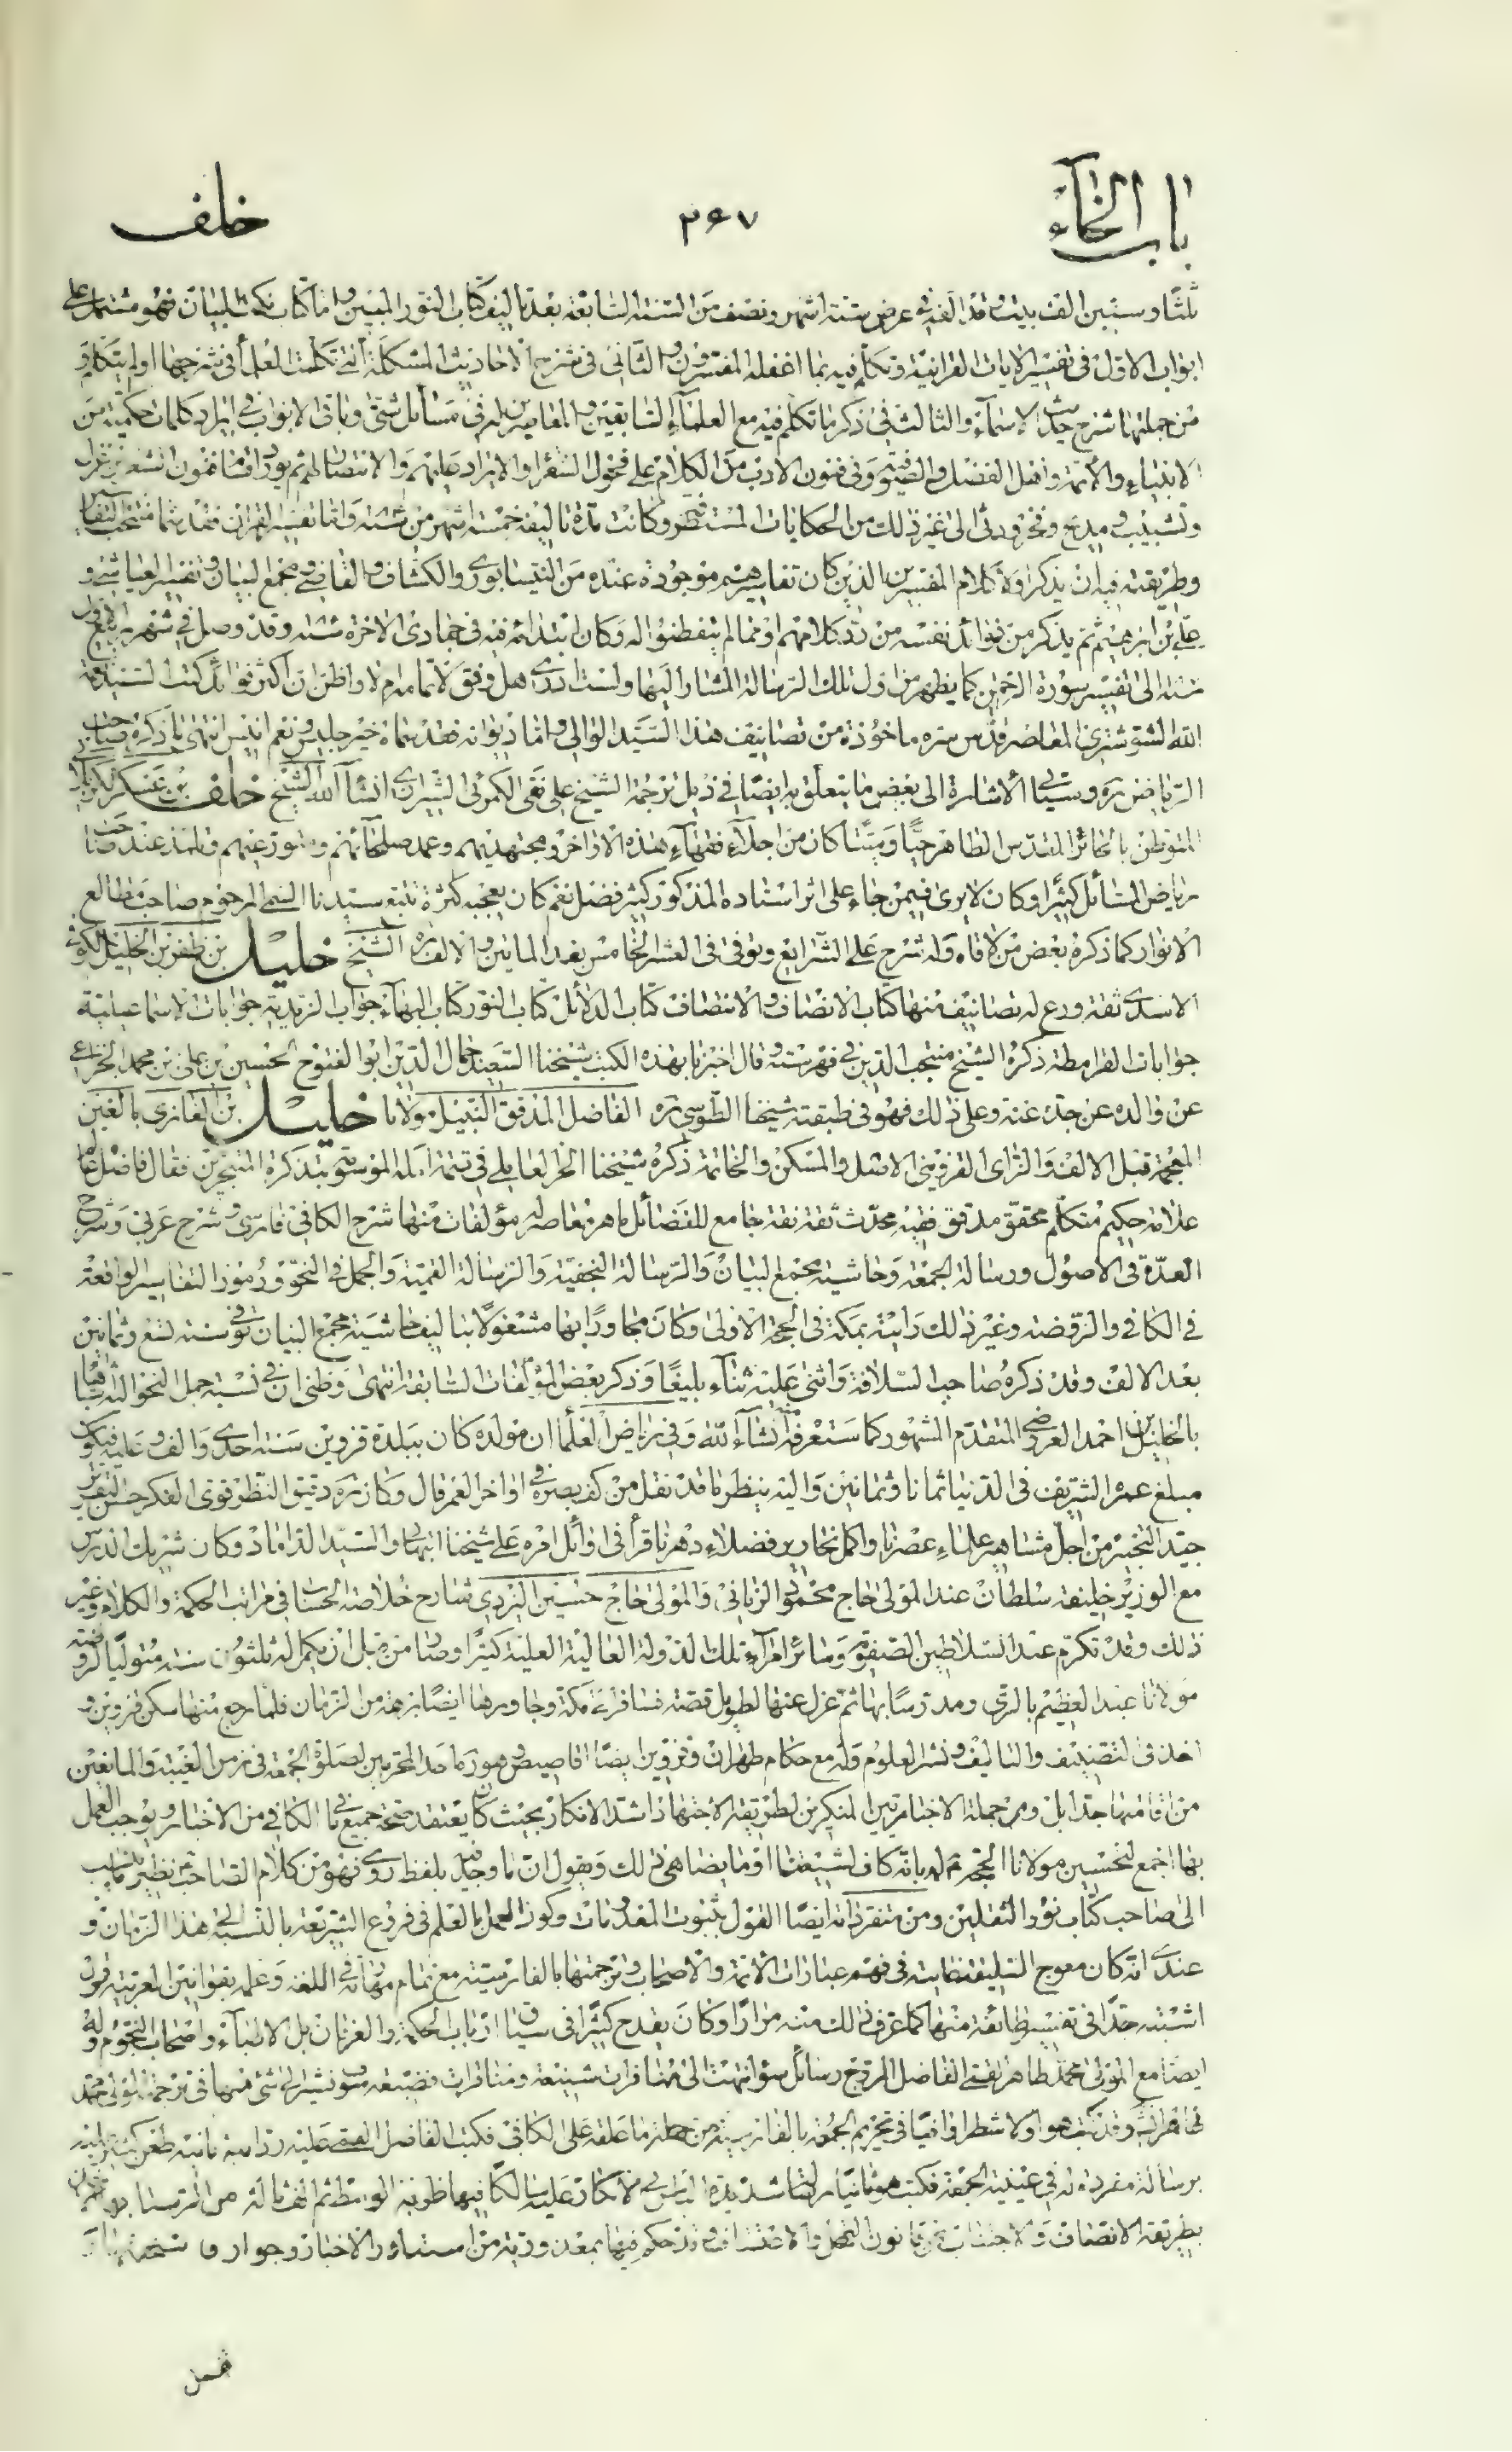 باب الخاء
٢۶٧
خلف
ثلثا وستين الف بيت وقد الفه في عرض ستة اشهر ونصف من السنة السابعة بعد تاليف كتاب النور المبين واما كتاب نكت البيان فهو مشتمل على
ابواب الاول في تفسير الايات القرانية وتكلم فيه بما اغفله المفسرون والثاني في شرح الاحاديث المشكلة التي تكلمت العلماء في شرحها او لم يتكلموا و
من جملتها شرح حديث الاسماء والثالث في ذكر ما تكلم فيه مع العلماء السابقين والمعاصرين له في مسائل شتى وباقي الابواب في ايراد كلمات حكمية من
الانبياء والائمة واهل الفضل والصوفية وفي فنون الادب من الكلام على فحول الشعرا والايراد عليهم والانتصار لهم ثم يورد اقسام فنون الشعر من غزل
وتشبيب ومديح وفخر ورثى الى غير ذلك من الحكايات المستظرفة وكانت مدة تاليفه خمسة اشهر من سنة واما تفسير القران فقد سماه منتخب التفاسير
وطريقته فيه ان يذكر اولا كلام المفسرين الذين كان تفاسيرهم موجودة عنده من النيسابوري والكشاف والقاضي ومجمع البيان وتفسير العياشي و
علي بن ابرهيم ثم يذكر من فوائد نفسه من رد كلامهم او مما لم يتفطنوا له وكان ابتدائه فيه في جمادى الاخرة سنة وقد وصل في شهر ربيع الاول
منه الى تفسير سورة الرحمن كما يظهر من اول تلك الرسالة المشار اليها ولست ادري هل وفق لاتمامه ام لا واظن ان اكثر فوائد كتب السيد نعمة
الله الشوشتري المعاصر قدس سره ماخوذة من تصانيف هذا السيد الوالي واما ديوانه فقد سماه خير جليس ونعم انيس انتهى ما ذكره صاحب
الرياض ره وسيأتي الاشارة الى بعض ما يتعلق به ايضا في ذيل ترجمة الشيخ علي نقي الكمرئي الشيرازي انشاء الله الشيخ خلف بن عسكر الكربلائي
المتوطن بالحائر المقدس الطاهر حيا وميتا كان من اجلاء فقهاء هذه الاواخر ومجتهديهم وعمد صلحائهم ومتورعيهم وتلمذ عند صاحب
رياض المسائل كثيرا وكان لا يرى فيمن جاء على اثر استاده المذكور كثير فضل نعم كان يعجبه كثرة تتبع سيدنا السمي المرحوم صاحب مطالع
الانوار كما ذكره بعض من لاقاه وله شرح على الشرايع وتوفي في العشر الخامس بعد المائتين والالف ره الشيخ خليل بن ظفر بن الخليل الكوفي
الاسدي ثقة ورع له تصانيف منها كتاب الانصاف والانتصاف كتاب الدلائل كتاب النور كتاب البهاء جواب الزيدية جوابات الاسماعيلية
جوابات القرامطة ذكره الشيخ منتجب الدين في فهرسته وقال اخبرنا بهذه الكتب شيخنا السعيد جمال الدين ابو الفتوح الحسين بن علي بن محمد الخزاعي
عن والده عن جده عنه وعلى ذلك فهو في طبقة شيخنا الطوسي ره الفاضل المدقق النبيل مولانا خليل بن الغازي بالغين
المعجمة قبل الالف والزاى القزويني الاصل والمسكن والخاتمة ذكره شيخنا الحر العاملي في تتمة امله الموسوم بتذكرة المتبحرين فقال فاضل عالم
علامة حكيم متكلم محقق مدقق فقيه محدث ثقة ثقة جامع للفضائل ماهر معاصر له مؤلفات منها شرح الكافي فارسي وشرح عربي وشرح
العدة في الاصول ورسالة الجمعة وحاشية مجمع البيان والرسالة النجفية والرسالة القمية والجمل في النحو ورموز التفاسير الواقعة
في الكافي والروضة وغير ذلك رايته بمكة في الحجة الاولى وكان مجاورا بها مشغولا بتاليف حاشية مجمع البيان توفي سنة تسع وثمانين
بعد الالف وقد ذكره صاحب السلافة واثنى عليه ثناء بليغا وذكر بعض المؤلفات السابقة انتهى وظني ان في نسبة جمل النحو اليه
بالخليل بن احمد العروضي المتقدم المشهور كما ستعرفه انشاء الله وفي رياض العلماء ان مولده كان ببلدة قزوين سنة احدى والف وعليه فيكون
مبلغ عمره الشريف في الدنيا ثمانا وثمانين واليه ينظر ما قد نقل من كف بصره في اواخر العمر قال وكان ره دقيق النظر قوي الفكر حسن التقرير
جيد التحبير من اجل مشاهير علماء عصرنا واكمل نحارير فضلاء دهرنا قرأ في اوائل امره على شيخنا البهائي والسيد الداماد وكان شريك الدرس
مع الوزير خليفة سلطان عند المولى حاج محمود الرناني والمولى حاج حسين اليزدي شارح خلاصة الحساب في مراتب الحكمة والكلام وغير
ذلك وقد تكرم عند السلاطين الصفوية وسائر امراء تلك الدولة العالية العلية كثيرا وصار من قبل ان يكمل له ثلثون سنة متوليا لروضة
مولانا عبد العظيم بالري ومدرسا بها ثم عزل عنها لطويل قصة فسافر الى مكة وجاور بها ايضا برهة من الزمان فلما رجع منها سكن قزوين و
اخذ في التصنيف والتاليف ونشر العلوم وله مع حكام طهران وقزوين ايضا اقاصيص وهو ره احد المحرمين لصلوة الجمعة في زمن الغيبة والمانعين
من اقامتها جدا بل ومن جملة الاخباريين المنكرين لطريقة الاجتهاد اشد الانكار بحيث كان يعتقد صحة جميع ما في الكافي من الاخبار ويوجب العمل
بها اجمع لتحسين مولانا الحجة له بانه كاف لشيعتنا او ما يضاهي ذلك ويقول ان ما وجد بلفظ روي فهو من كلام الصاحب نظير ما نسب
الى صاحب كتاب نور الثقلين ومن متفرداته ايضا القول بثبوت المعدومات وكون العمل بالعلم في فروع الشريعة بالنسبة الى هذا الزمان و
عندي انه كان معوج السليقة في فهم عبارات الائمة والاصحاب وترجمتها بالفارسية مع تمام مهارته في اللغة وعلمه بقوانين العربية فربما
اشتبه جدا في تفسير طائفة منها كما عرف ذلك منه مرارا وكان يقدح كثيرا في سياق ارباب الحكمة والعرفان بل الاطباء واصحاب النجوم وله
ايضا مع المولى محمد طاهر القمي الفاضل المروج رسائل سؤ انتهت الى منافرات شنيعة ومناقرات فضيعة سنشير الى شئ منها في ترجمة المولى محمد
طاهر وقد كتب هو اولا شطرا وافيا في تحريم الجمعة بالفارسية من جملة ما علقه على الكافي فكتب الفاضل القمي عليه ردا
برسالة مفردة له في عينية الجمعة فكتب هو ثانيا
بطريقة الانصاف والاجتناب عن قانون
فصل